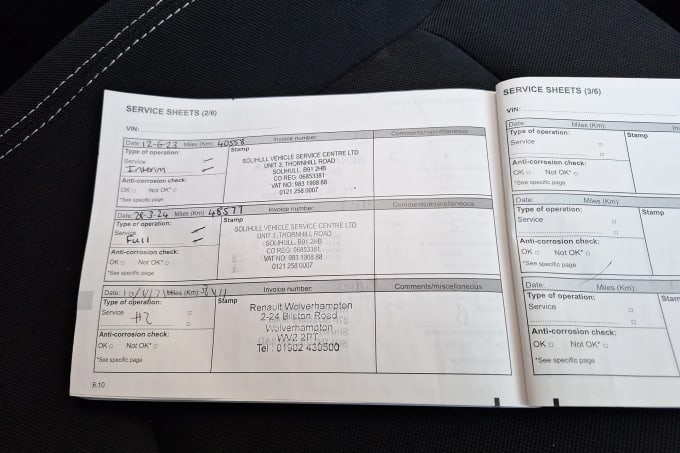 SERVICE SHEETS (2/6)
VIN:
Date: 12-6-23 Miles (Km): 40558 Invoice number: Comments/miscellaneous
Type of operation:
Service
Interim
Anti-corrosion check:
OK Not OK*
*See specific page
Stamp
SOLIHULL VEHICLE SERVICE CENTRE LTD
UNIT 3, THORNHILL ROAD
SOLIHULL, B91 2HB
CO REG: 06853381
VAT NO: 983 1908 88
0121 258 0007
Date: 28-3-24 Miles (Km): 48577 Invoice number: Comments/miscellaneous
Type of operation:
Service
Full
Anti-corrosion check:
OK Not OK*
*See specific page
Stamp
SOLIHULL VEHICLE SERVICE CENTRE LTD
UNIT 3, THORNHILL ROAD
SOLIHULL, B91 2HB
CO REG: 06853381
VAT NO: 983 1908 88
0121 258 0007
Date: Miles (Km): Invoice number: Comments/miscellaneous
Type of operation:
Service
#2
Anti-corrosion check:
OK Not OK*
*See specific page
Stamp
Renault Wolverhampton
2-24 Bilston Road
Wolverhampton
WV2 2PT
Tel : 01902 430500
6.10
SERVICE SHEETS (3/6)
VIN:
Date: Miles (Km):
Type of operation:
Service
Anti-corrosion check:
OK Not OK*
*See specific page
Stamp
Date: Miles (Km):
Type of operation:
Service
Anti-corrosion check:
OK Not OK*
*See specific page
Stamp
Date: Miles (Km):
Type of operation:
Service
Anti-corrosion check:
OK Not OK*
*See specific page